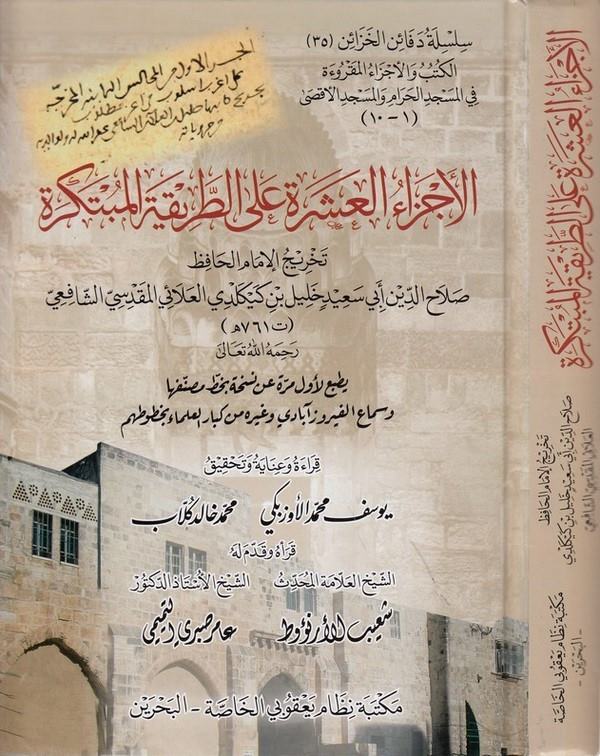 سلسلة دفائن الخزائن (٣٥)
الكتب والأجزاء المقروءة
في المسجد الحرام والمسجد الأقصى
(١ - ١٠)
الأجزاء العشرة على الطريقة المبتكرة
تخريج الإمام الحافظ
صلاح الدين أبي سعيد خليل بن كيكلدي العلائي المقدسي الشافعي
(ت ٧٦١ هـ)
رحمه الله تعالى
يطبع لأول مرة عن نسخة بخط مصنفها
وسماع الفيروزآبادي وغيره من كبار العلماء بخطوطهم
قراءة وعناية وتحقيق
يوسف محمد الأوزبكي محمد خالد كلاب
قرأه وقدم له
الشيخ العلامة المحدث الشيخ الأستاذ الدكتور
شعيب الأرنؤوط عامر صبري التميمي
مكتبة نظام يعقوبي الخاصة - البحرين
الأجزاء العشرة على الطريقة المبتكرة
تخريج الإمام الحافظ
صلاح الدين أبي سعيد خليل بن كيكلدي
العلائي المقدسي الشافعي
مكتبة نظام يعقوبي الخاصة
- البحرين -